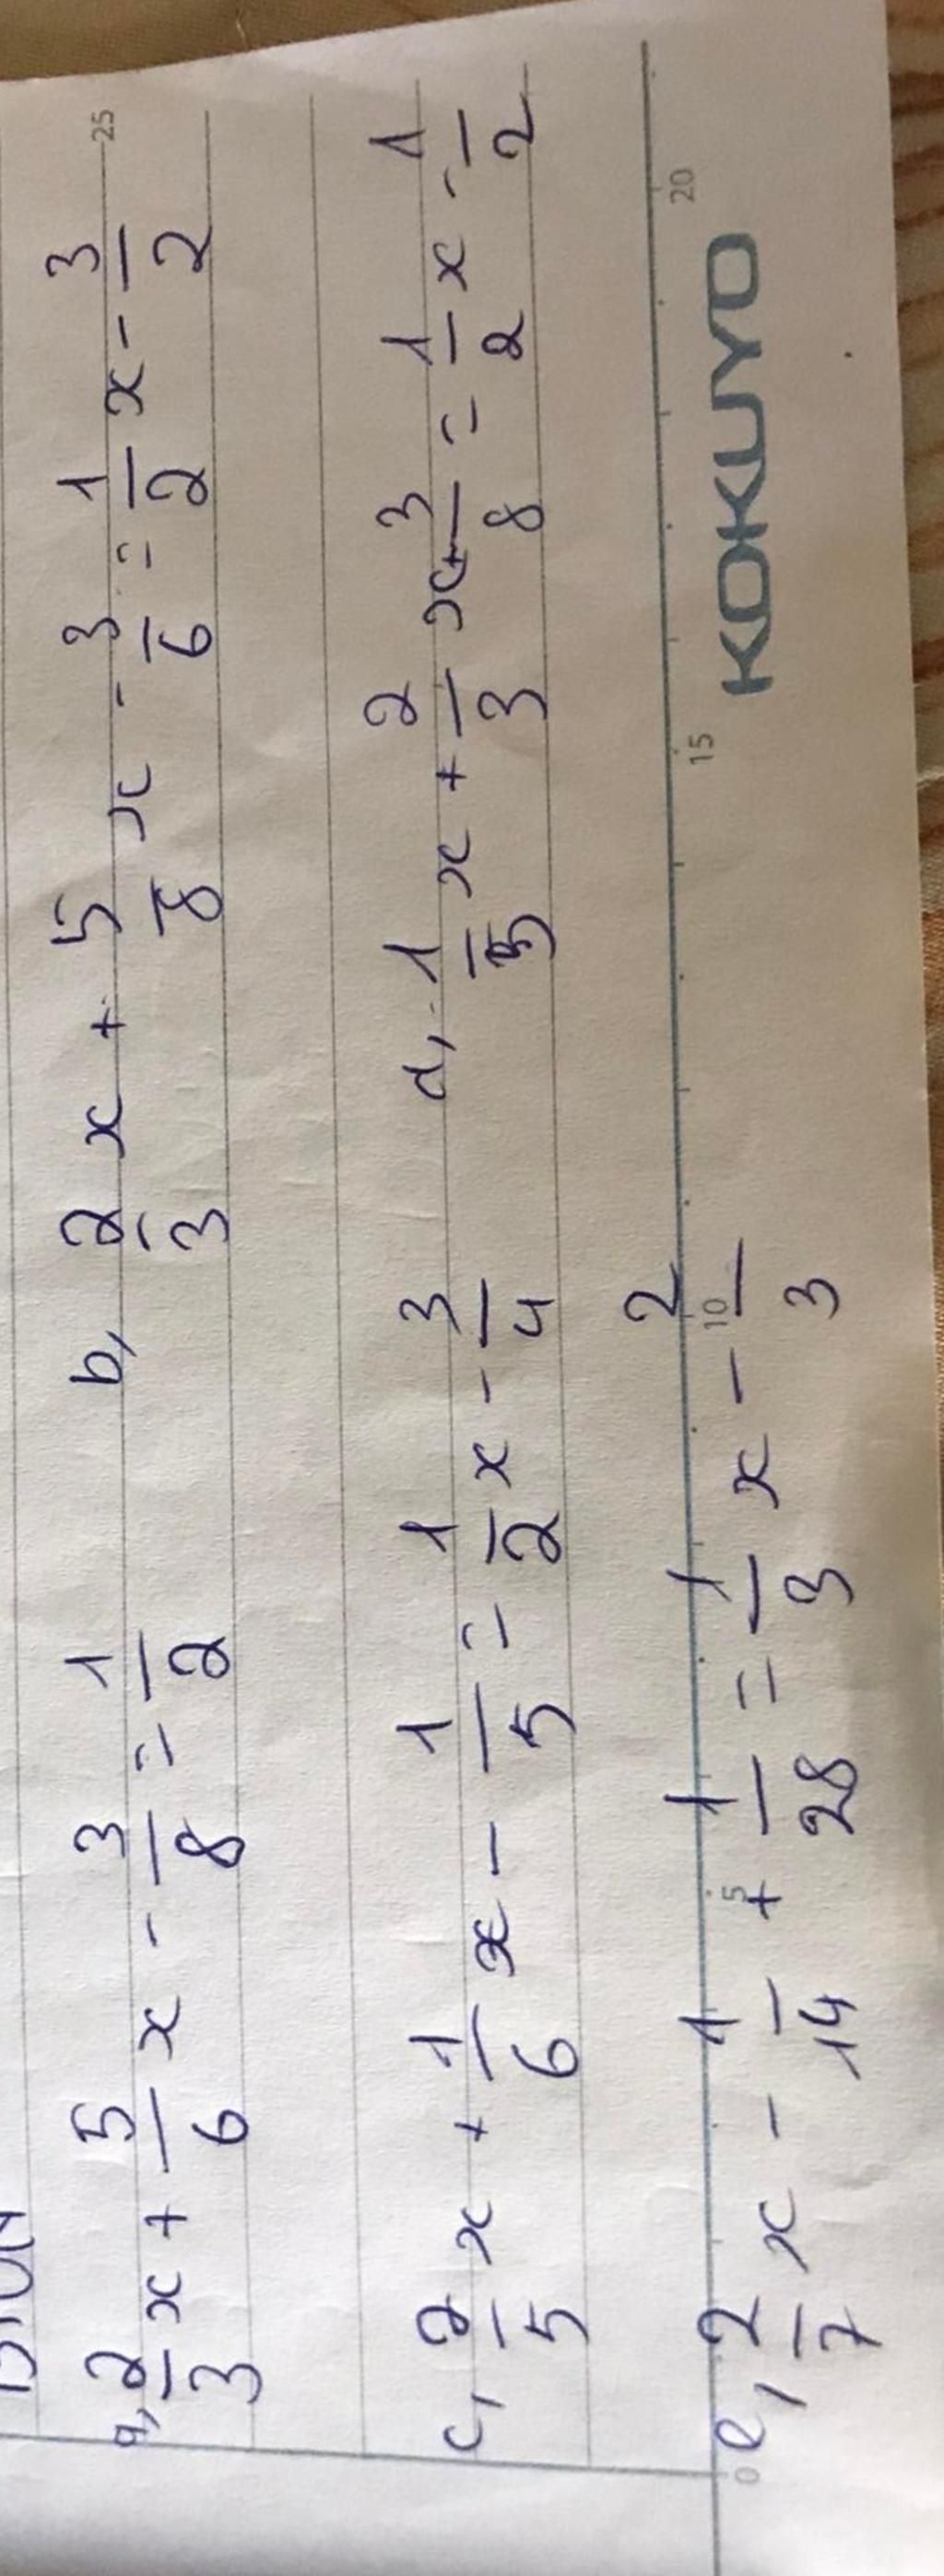 a, 2/3 x + 5/6 x - 3/8 = 1/2 b, 2/3 x + 5/8 x - 3/6 = 1/2 x - 3/2
c, 2/5 x + 1/6 x - 1/5 = 1/2 x - 3/4 d, 1/3 x + 2/3 x + 3/8 = 1/2 x - 1/2
e, 2/7 x - 1/14 + 1/28 = 1/3 x - 2/3
0 5 10 15 20 25
KOKUYO